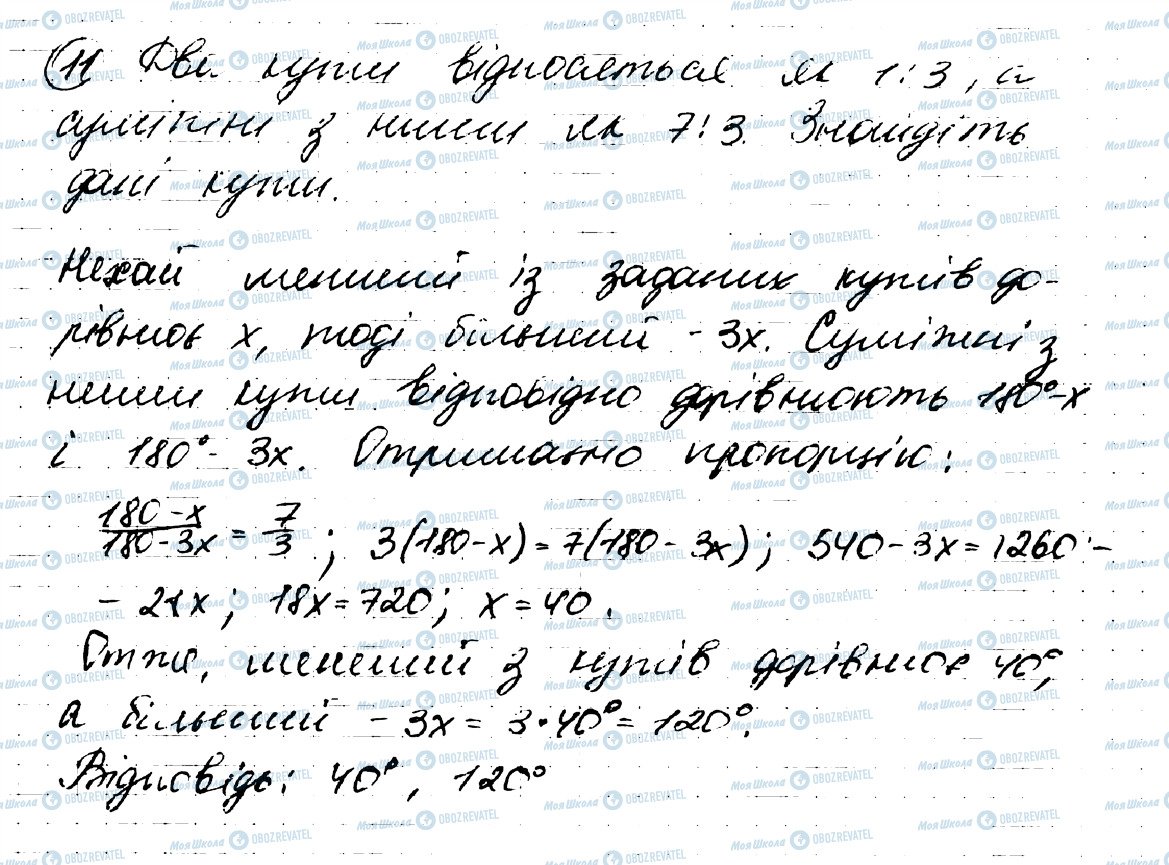 11 Два кути відносяться як 1:3, а
суміжні з ними як 7:3. Знайдіть
дані кути.
Нехай менший із заданих кутів до-
рівнює х, тоді більший - 3х. Суміжні з
ними кути відповідно дорівнюють 180°-х
і 180°- 3х. Отримаємо пропорцію:
180-х/180-3х = 7/3 ; 3(180-х)=7(180-3х); 540-3х=1260-
- 21х; 18х=720; х=40.
Отже, менший з кутів дорівнює 40°,
а більший - 3х = 3·40°= 120°.
Відповідь: 40°, 120°